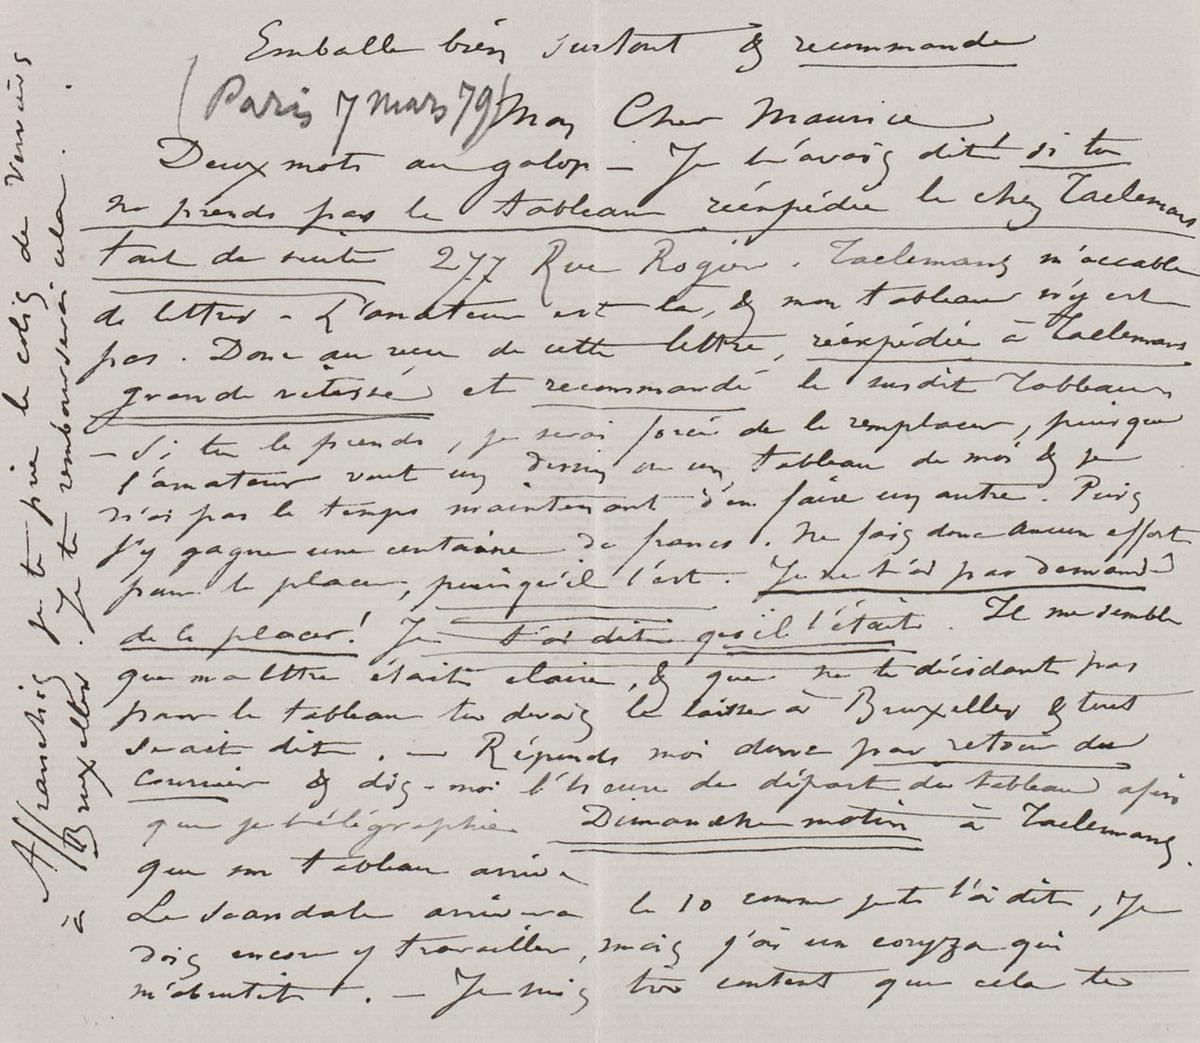 Emballe bien surtout & recommande
(Paris 7 mars 79) Mon Cher Maurice
Deux mots au galop – Je t'avais dit si tu
ne prends pas le tableau réexpédie le chez Taelemans
tout de suite 277 Rue Rogier. Taelemans m'accable
de lettres – L'amateur est là, & mon tableau n'y est
pas. Donc au reçu de cette lettre, réexpédie à Taelemans
grande vitesse et recommandé le susdit tableau
– Si tu le prends, je serai forcé de le remplacer, puisque
l'amateur veut un dessin ou un tableau de moi & je
n'ai pas le temps maintenant d'en faire un autre. Puis
j'y gagne une centaine de francs. Ne fais donc aucun effort
pour le placer, puisqu'il l'est. Je ne t'ai pas demandé
de le placer! Je t'ai dit qu'il l'était. Il me semble
que ma lettre était claire, & que ne te décidant pas
pour le tableau tu devais le laisser à Bruxelles & tout
serait dit. – Réponds moi donc par retour du
courrier & dis-moi l'heure du départ du tableau afin
que je télégraphie Dimanche matin à Taelemans
que son tableau arrive
Le Scandale arrivera le 10 comme je te l'ai dit, Je
dois encore y travailler, mais j'ai un coryza qui
m'abrutit. – Je suis très content que cela te
Affranchis je te prie le colis de Verviers
à Bruxelles. Je te rembourserai cela.